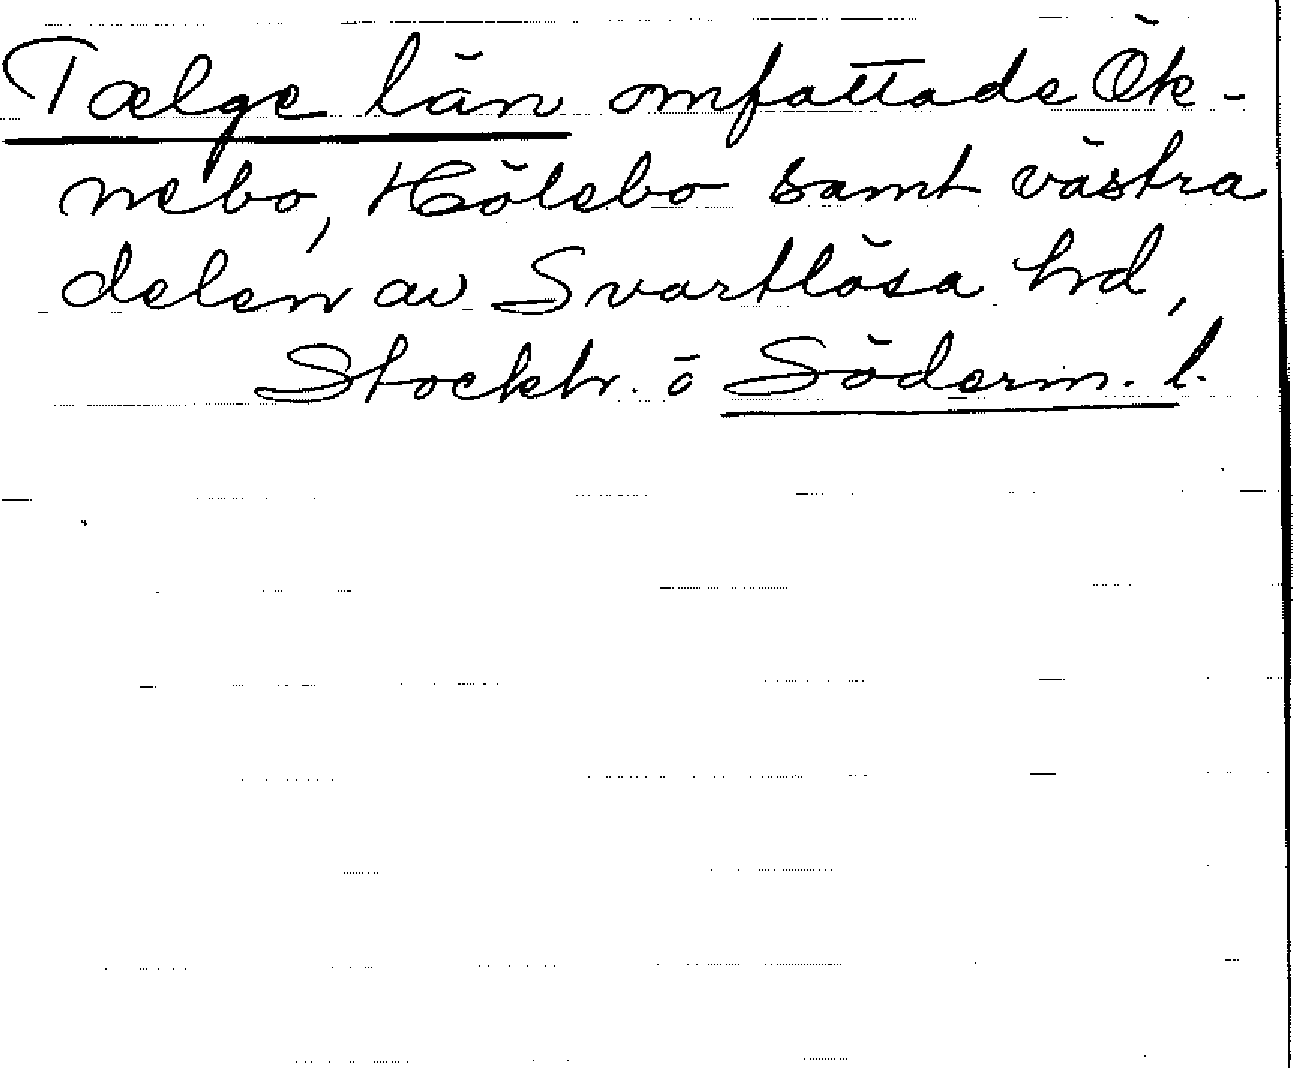 Tælge län omfattade Ök-
nebo, Hölebo samt västra
delen av Svartlösa hrd,
Stockh. o Söderm. l.